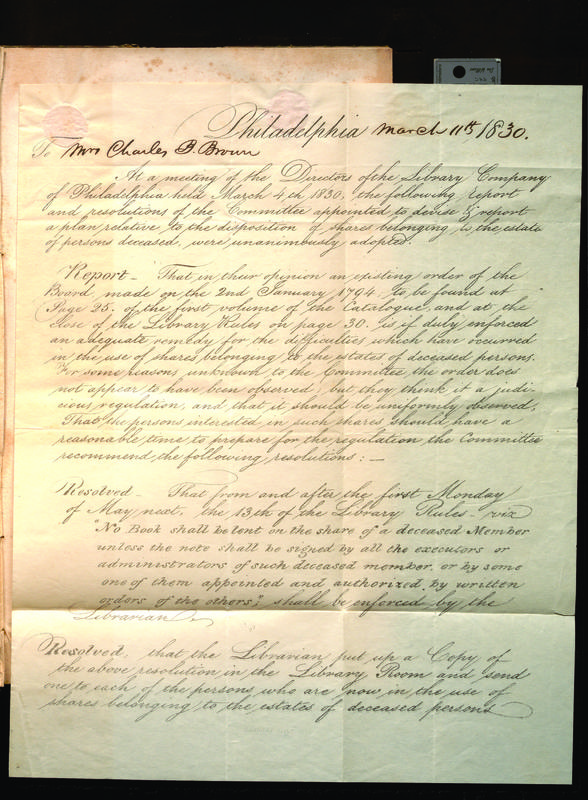 Philadelphia March 11th 1830.
To Mrs Charles B. Brown
At a meeting of the Directors of the Library Company
of Philadelphia held March 4th 1830, the following report
and resolutions of the Committee appointed to devise & report
a plan relative to the disposition of shares belonging to the estate
of persons deceased, were unanimously adopted.
Report - That in their opinion an existing order of the
Board, made on the 2nd January 1794, to be found at
Page 25, of the first volume of the Catalogue, and at the
close of the Library Rules on page 30. is if duly enforced
an adequate remedy for the difficulties which have occurred
in the use of shares belonging to the estates of deceased persons.
For some reasons unknown to the Committee the order does
not appear to have been observed, but they think it a judi-
cious regulation, and that it should be uniformly observed,
That the persons interested in such shares should have a
reasonable time to prepare for the regulation the Committee
recommend the following resolutions: —
Resolved - That from and after the first Monday
of May next, the 13th of the Library Rules - viz
"No Book shall be lent on the share of a deceased Member
unless the note shall be signed by all the executors or
administrators of such deceased member, or by some
one of them appointed and authorized by written
orders of the others", shall be enforced by the
Librarian.
Resolved, that the Librarian put up a Copy of
the above resolution in the Library Room and send
one to each of the persons who are now in the use of
shares belonging to the estates of deceased persons